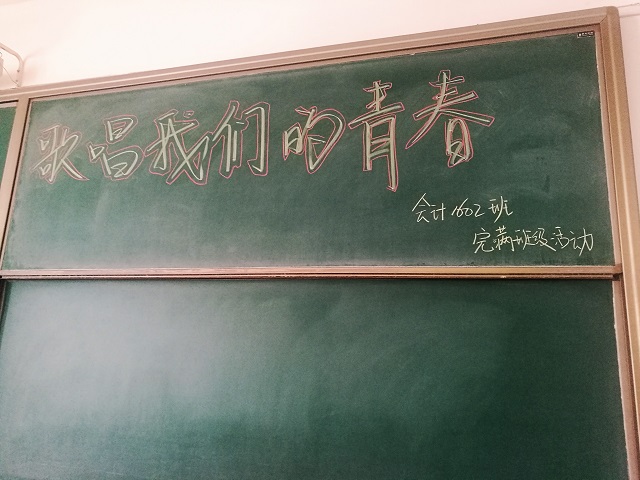 歌唱我们的青春
会计1602班
完满班级活动